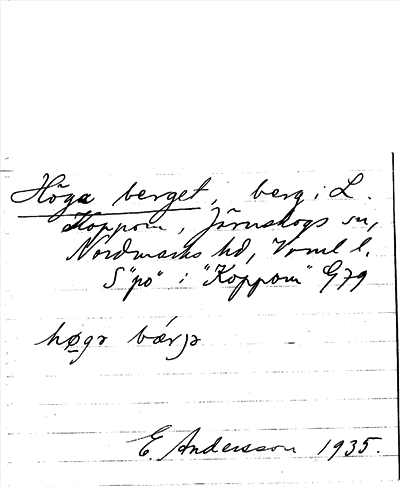 Höga berget, berg i L.
Koppom, Järnskogs sn,
Nordmarks hd, Vrml l.
S "po" i "Koppom" G79
høgə bærjə
E. Andersson 1935.